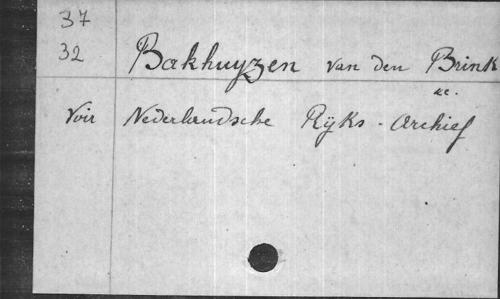 37
32 Bakhuyzen van den Brink
&c.
Voir Nederlandsche Rÿks-Archief